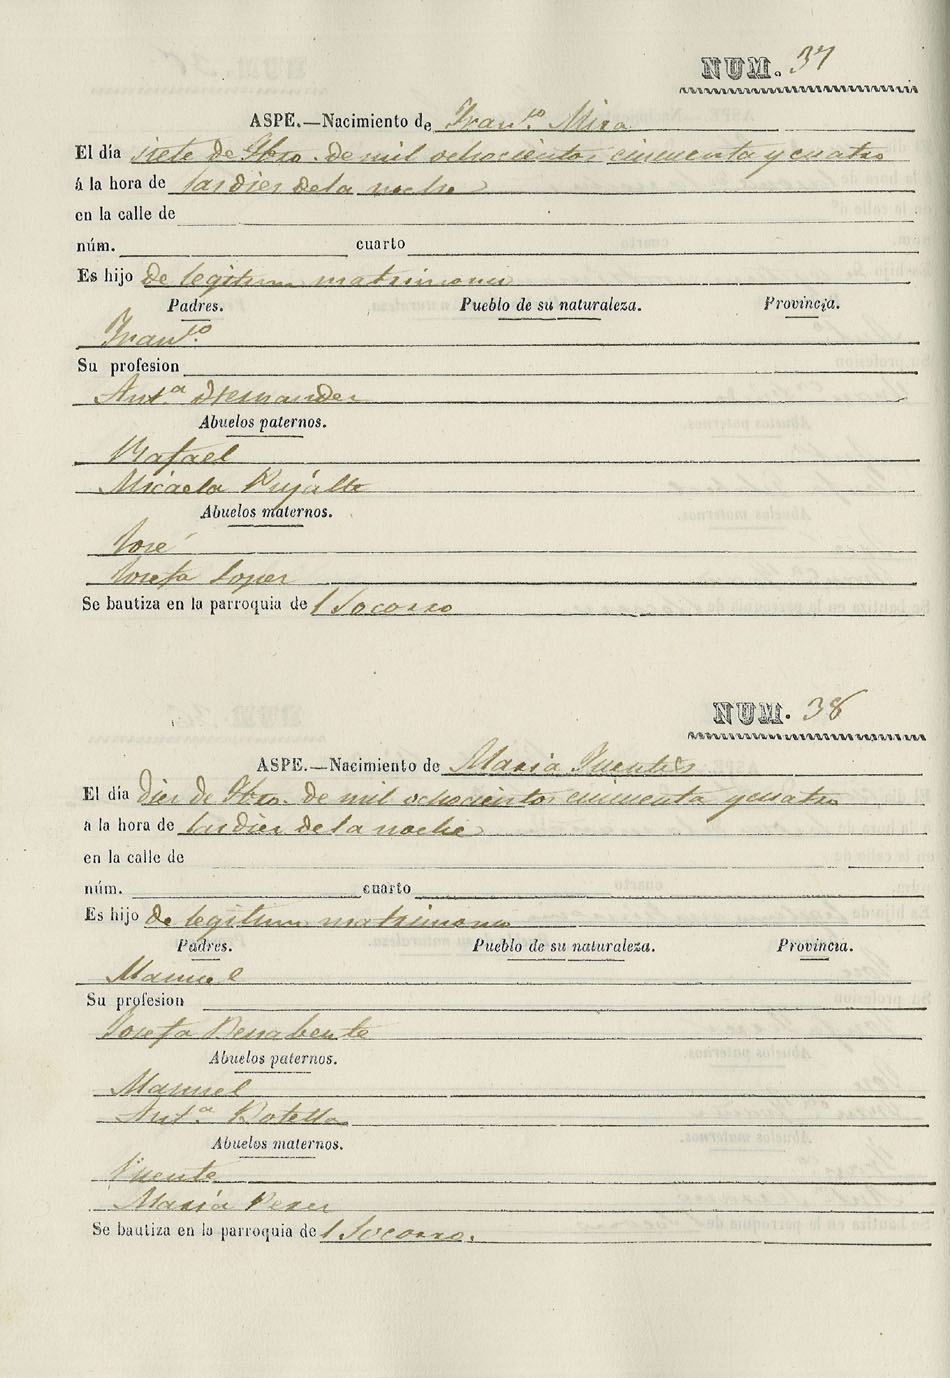 NUM. 37
ASPE.—Nacimiento de Fran.co Mira
El día siete de Fbro. de mil ochocientos cincuenta y cuatro
á la hora de las diez de la noche
en la calle de
núm. cuarto
Es hijo de legitimo matrimonio
Padres. Pueblo de su naturaleza. Provincia.
Fran.co
Su profesion
Ant.a Hernandez
Abuelos paternos.
Rafael
Micaela Pujalte
Abuelos maternos.
José
Josefa Lopez
Se bautiza en la parroquia del Socorro
NUM. 38
ASPE.—Nacimiento de Maria Fuentes
El día diez de Fbro. de mil ochocientos cincuenta y cuatro
á la hora de las diez de la noche
en la calle de
núm. cuarto
Es hijo de legitimo matrimonio
Padres. Pueblo de su naturaleza. Provincia.
Manuel
Su profesion
Josefa Benabente
Abuelos paternos.
Manuel
Ant.a Botella
Abuelos maternos.
Maria Perez
Se bautiza en la parroquia del Socorro.